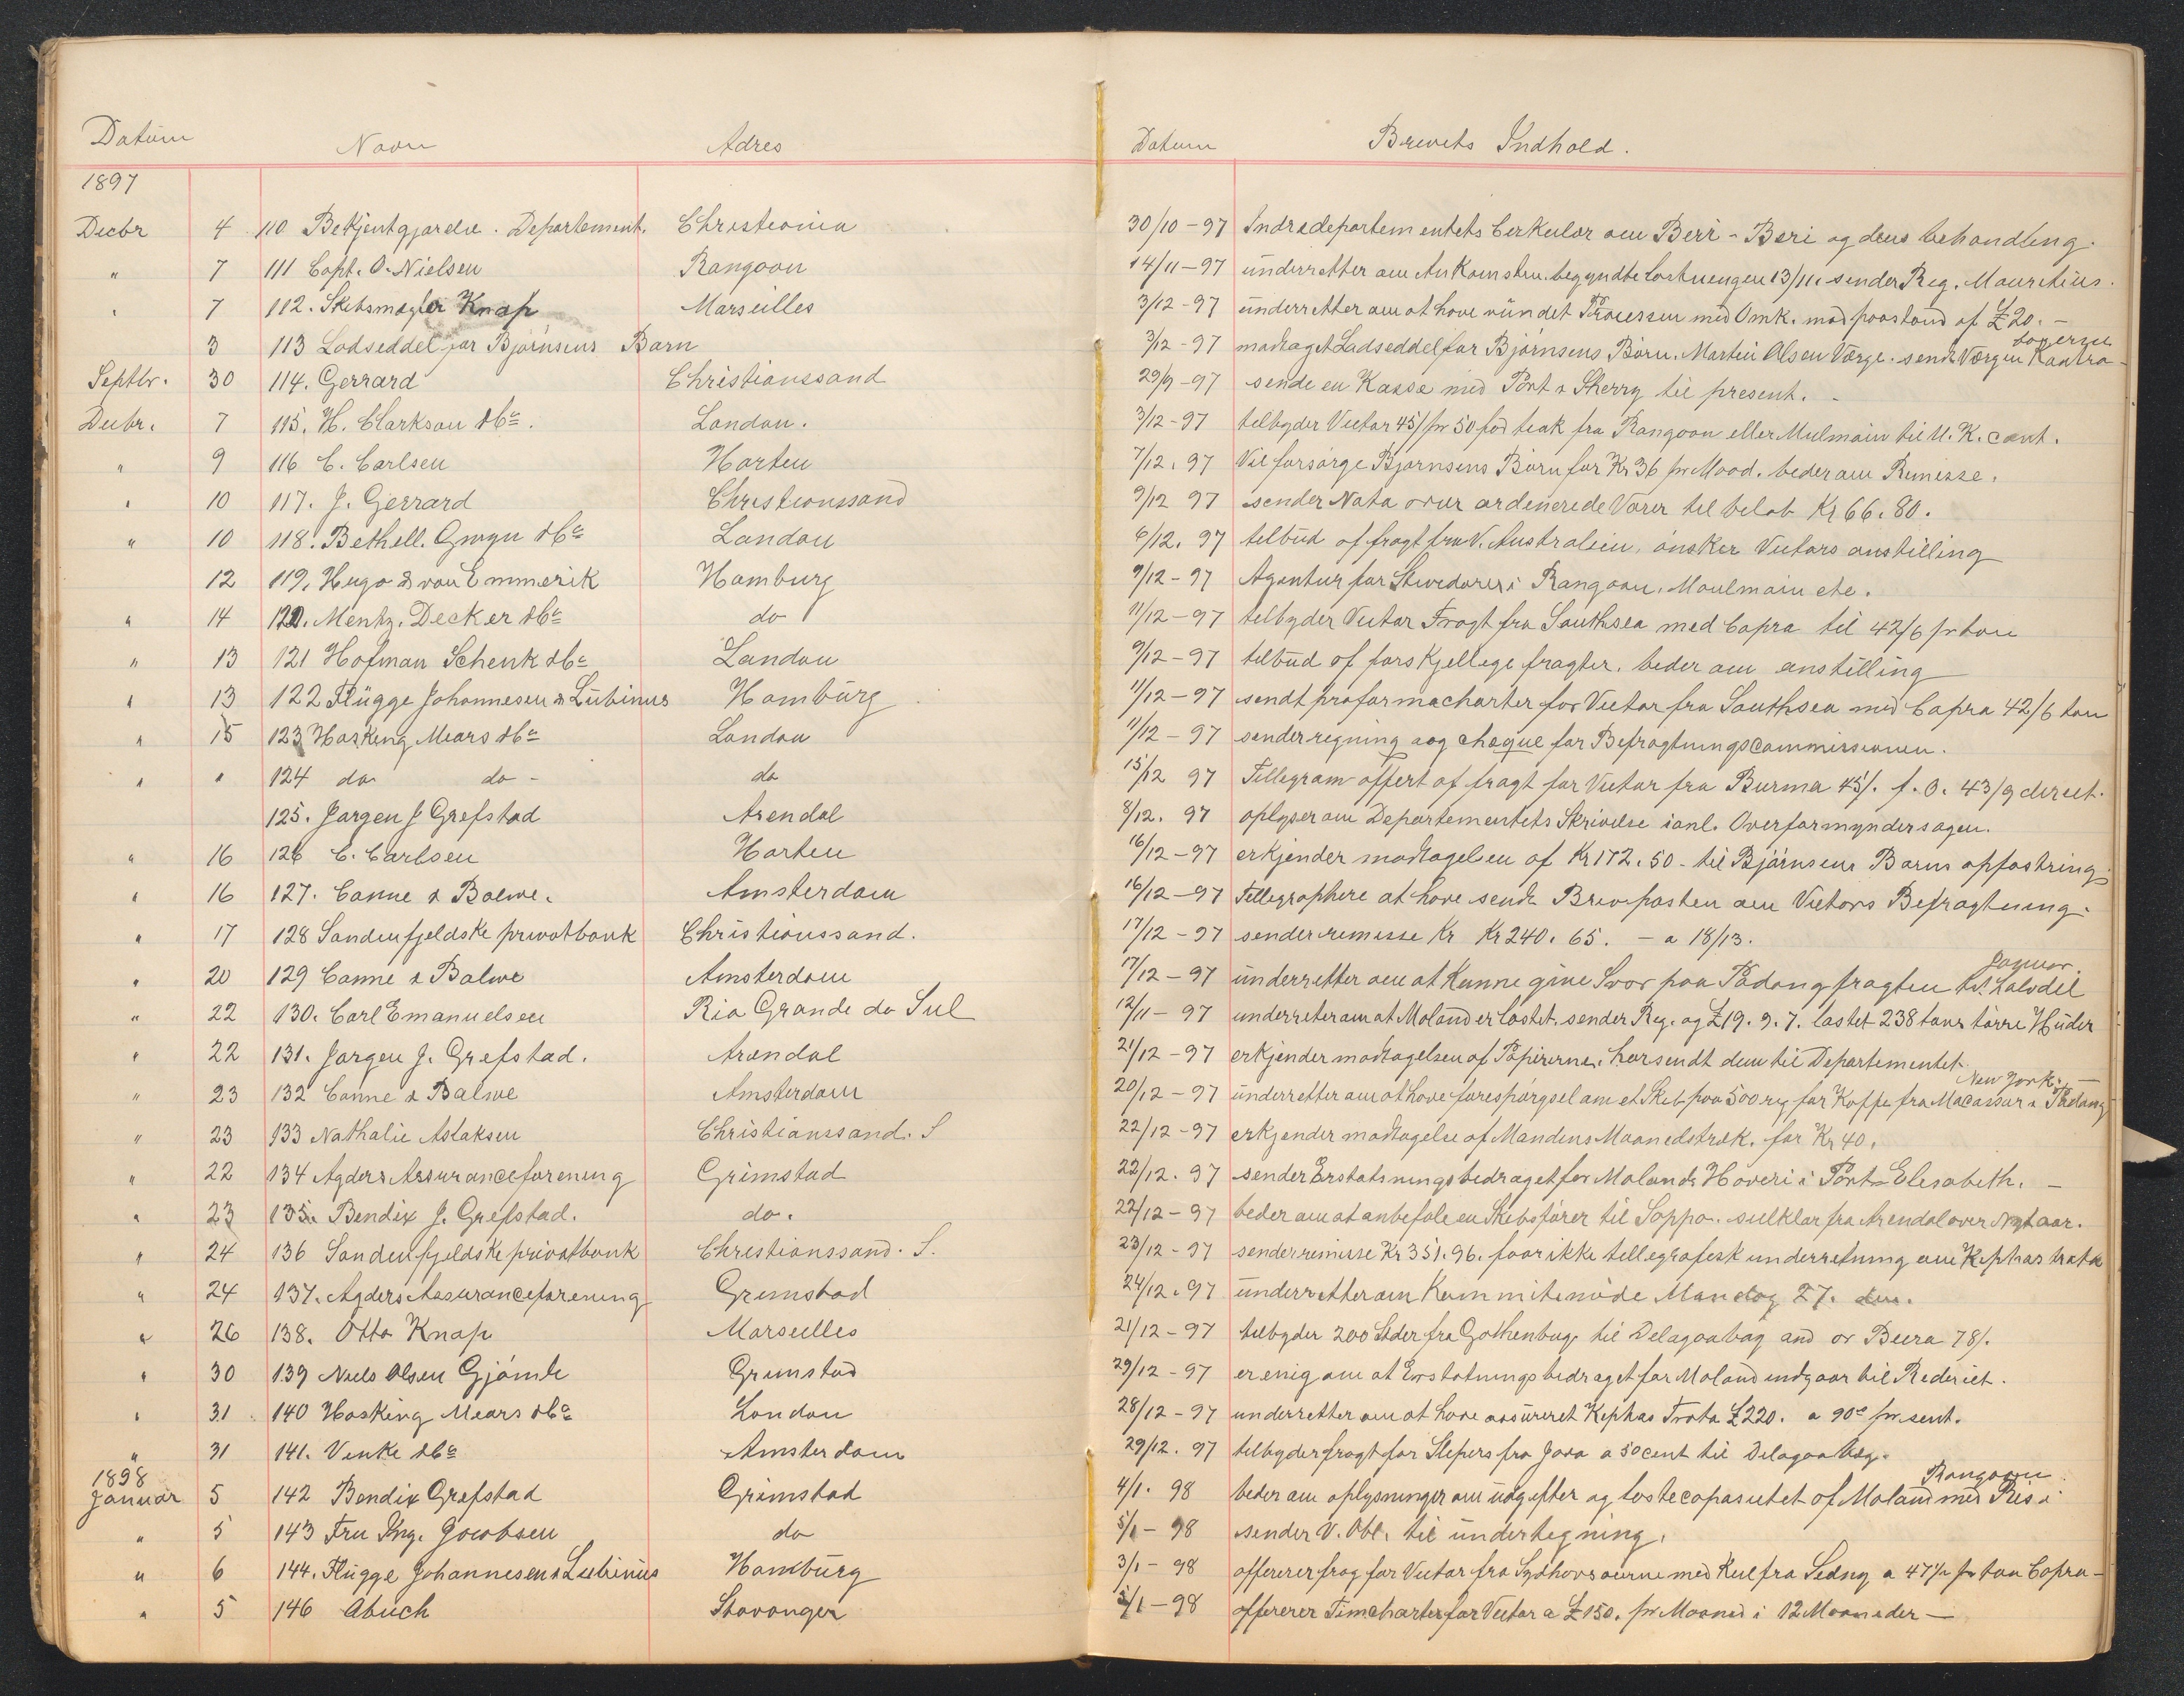 Datum Navn Adres Datum Brevets Indhold.
1897
Decbr 4 110 Bekjentgjørelse. Departement. Christiania 30/10-97 Indredepartementets Cerkulær om Berri-Beri og dens behandling.
" 7 111 Capt. O. Nielsen Rangoon 14/11-97 underretter om Ankomsten. begyndte lastningen 13/11. sender Reg. Mauritius.
" 7 112. Skibsmægler Knap Marseilles 3/12-97 underretter om at have vundet Processen med Omk. mod paastand af £20.-
3 113 Ladseddel for Bjørnsens Barn 3/12-97 modtaget Ladseddel for Bjørnsens Børn. Martin Olsen Værge. sendt Værgen
Septbr. 30 114. Gerrard Christianssand 29/9-97 sende en Kasse med Port & Sherry til present. -
Decbr. 7 115. H. Clarkson & Co. London. 3/12-97 telbyder Victor 45/ pr 50 fod teak fra Rangoon eller Mulmain til U.K. cont.
" 9 116 C. Carlsen Horten 7/12. 97 Vil forsørge Bjørnsens Børn for Kr 36 pr Maad. beder om Remisse.
" 10 117. J. Gerrard Christianssand 9/12 97 sender Nota over ordenerede Varer til beløb Kr 66. 80.
" 10 118. Bethell. Gwyn & Co London 6/12. 97 telbud af fragt fra V. Australien, ønsker Victors anstilling
12 119, Hugo & van Emmerik Hamburg 9/12-97 Agentur for Stevedores i Rangoon. Moulmain etc.
" 14 120. Mentz. Decker & Co do 11/12-97 telbyder Victor Fragt fra Southsea med Copra til 42/6 pr ton
" 13 121 Hofman Schenk & Co London 9/12-97 telbud af forskjellege fragter. beder om anstilling
" 13 122 Flügge Johannesen & Lübinus Hamburg 11/12-97 sendt proformacharter for Victor fra Southsea med Copra 42/6 ton
" 15 123 Hasking Mears & Co London 11/12-97 sender regning aog cheque for Befragtningscommissionen.
" " 124 do do - do 15/12 97 Tellegram offert af fragt for Victor fra Burma 45/. f.O. 43/9 direct.
125. Jørgen J Grefstad Arendal 8/12. 97 oplyser om Departementets Skrivelse i anl. Overformyndersagen.
" 16 126 C. Carlsen Horten 16/12-97 erkjender modtagelsen af Kr 172. 50 - til Bjørnsens Barns opfostring.
" 16 127. Canne & Balwe. Amsterdam 16/12-97 Tellegraphere at have sendt Brevposten om Victors Befragtning.
" 17 128 Søndenfjeldske privatbank Christianssand. 17/12-97 sender remisse Kr Kr 240. 65. - a 18/13.
" 20 129 Canne & Balwe Amsterdam 17/12-97 underretter om at Kunne give Svar paa Padang fragten til halvdel Januar.
" 22 130. Carl Emanuelsen Rio Grande do Sul 12/11-97 underreter om at Moland er lastet. sender Reg. og £19. 9. 7. lastet 238 tons tørre Huder
" 22 131. Jørgen J. Grefstad. Arendal 21/12-97 erkjender modtagelsen af Papirerne, har sendt dem til Departementet
" 23 132 Canne & Balwe Amsterdam 20/12-97 underretter om at have forespørgsel om et Skib paa 500 reg for Kaffe fra Macassar & Padang New York. -
" 23 133 Nathalie Aslaksen Christianssand. S 22/12-97 erkjender modtagelse af Mandens Maanedstræk. for Kr 40.
" 22 134 Agders Assuranceforening Grimstad 22/12. 97 sender Erstatsningsbedraget for Molands Haveri i Port-Elesabeth. -
" 23 135. Bendix J. Grefstad. do. 22/12-97 beder om at anbefale en Skibsfører til Sappo. seilklar fra Arendal over Nytaar.
" 24 136 Søndenfjeldske privatbank Christianssand. S. 23/12-97 sender remisse Kr 351. 96. faar ikke tellegrafesk underretning om Kephas tratte
" 24 137. Agders Assuranceforening Grimstad 24/12. 97 underretter om Kommitemøde Mandag 27. ds.
" 26 138. Otto Knap Marseilles 21/12-97 telbyder 200 Stder fra Gothenburg til Delagoabay and or Beira 78/.
" 30 139 Niels Olsen Gjømle Grimstad 29/12-97 er enig om at Erstatningsbedraget for Moland indgaar til Rederiet.
" 31 140 Hasking Mears & Co London 28/12-97 underretter om at have assureret Kephas Trata £220. a 90c pr sent.
" 31 141. Venke & Co Amsterdam 29/12. 97 telbyder fragt for Slepers fra Java a 50 cent til Delagoabay.
1898
Januar 5 142 Bendix Grefstad Grimstad 4/1. 98 beder om oplysninger om udgifter og lastecapasitet af Moland med Ris i Rangoon.
" 5 143 Fru Ing. Jacobsen do 5/1-98 sender V. Obl. til undertegning.
" 6 144. Flügge Johannesen & Lübinus Hamburg 3/1-98 offererer frag for Victor fra Sydhavsøerne med Kul fra Sedny a 47/6 pr ton Copra-
" 5 146 Abuch Stavanger 5/1-98 offererer Timecharter for Victor a £150. pr Maaned i 12 Maaneder-